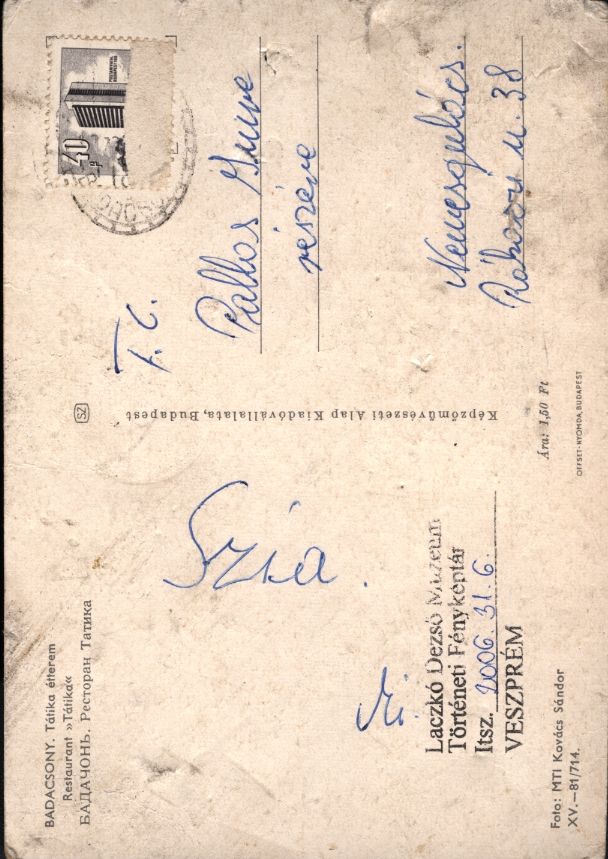 BADACSONY. Tátika étterem
Restaurant »Tátika«
БАДАЧОНЬ. Ресторан Татика
Szia.
Mi.
Laczkó Dezső Múzeum
Történeti Fényképtár
Itsz. 2006.31.6.
VESZPRÉM
Foto: MTI Kovács Sándor
XV.—81/714.
SZ
Képzőművészeti Alap Kiadóvállalata, Budapest
Ára: 1,50 Ft
OFFSET-NYOMDA, BUDAPEST
40
T. C.
Pallos Imre
részére
Nemesgulács.
Rákóczi u. 38